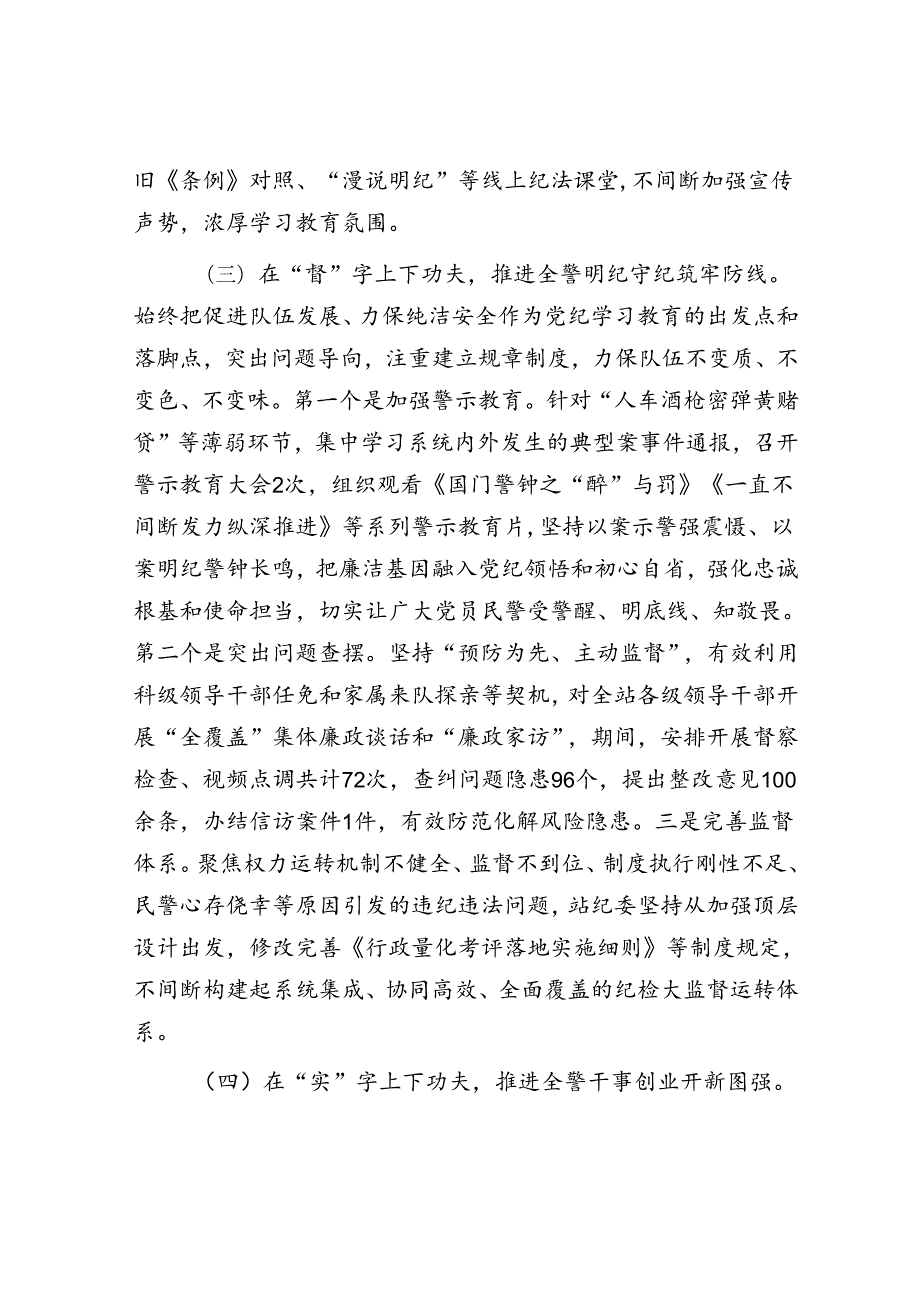 旧《条例》对照、“漫说明纪”等线上纪法课堂,不间断加强宣传
声势，浓厚学习教育氛围。
(三）在“督”字上下功夫，推进全警明纪守纪筑牢防线。
始终把促进队伍发展、力保纯洁安全作为党纪学习教育的出发点和
落脚点，突出问题导向，注重建立规章制度，力保队伍不变质、不
变色、不变味。第一个是加强警示教育。针对“人车酒枪密弹黄赌
贷”等薄弱环节，集中学习系统内外发生的典型案事件通报，召开
警示教育大会2次，组织观看《国门警钟之“醉”与罚》《一直不
间断发力纵深推进》等系列警示教育片,坚持以案示警强震慑、以
案明纪警钟长鸣，把廉洁基因融入党纪领悟和初心自省，强化忠诚
根基和使命担当，切实让广大党员民警受警醒、明底线、知敬畏。
第二个是突出问题查摆。坚持“预防为先、主动监督”，有效利用
科级领导干部任免和家属来队探亲等契机，对全站各级领导干部开
展“全覆盖”集体廉政谈话和“廉政家访”，期间，安排开展督察
检查、视频点调共计72次，查纠问题隐患96个，提出整改意见100
余条，办结信访案件1件，有效防范化解风险隐患。三是完善监督
体系。聚焦权力运转机制不健全、监督不到位、制度执行刚性不足、
民警心存侥幸等原因引发的违纪违法问题，站纪委坚持从加强顶层
设计出发，修改完善《行政量化考评落地实施细则》等制度规定，
不间断构建起系统集成、协同高效、全面覆盖的纪检大监督运转体
系。
（四）在“实”字上下功夫，推进全警干事创业开新图强。